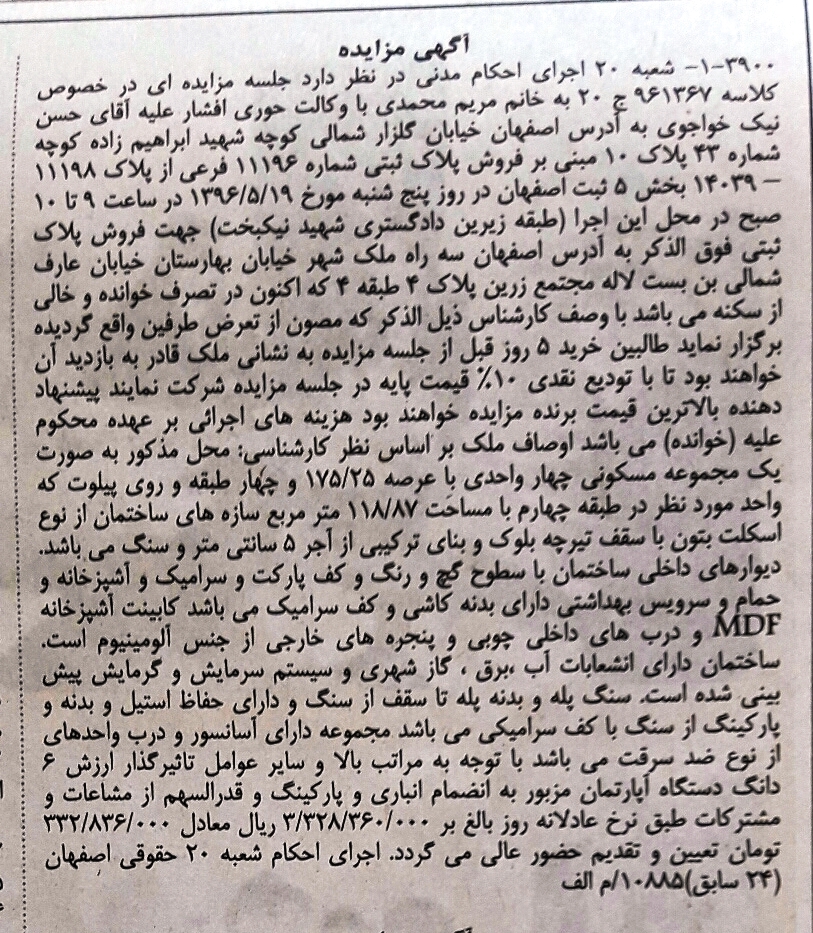 آگهی مزایده
۱-۳۹۰۰- شعبه ۲۰ اجرای احکام مدنی در نظر دارد جلسه مزایده ای در خصوص
کلاسه ۹۶۱۳۶۷ ج ۲۰ به خانم مریم محمدی با وکالت حوری افشار علیه آقای حسن
نیک خواجوی به آدرس اصفهان خیابان گلزار شمالی کوچه شهید ابراهیم زاده کوچه
شماره ۴۳ پلاک ۱۰ مبنی بر فروش پلاک ثبتی شماره ۱۱۱۹۶ فرعی از پلاک ۱۱۱۹۸
– ۱۴۰۳۹ بخش ۵ ثبت اصفهان در روز پنج شنبه مورخ ۱۳۹۶/۵/۱۹ در ساعت ۹ تا ۱۰
صبح در محل این اجرا (طبقه زیرین دادگستری شهید نیکبخت) جهت فروش پلاک
ثبتی فوق الذکر به آدرس اصفهان سه راه ملک شهر خیابان بهارستان خیابان عارف
شمالی بن بست لاله مجتمع زرین پلاک ۴ طبقه ۴ که اکنون در تصرف خوانده و خالی
از سکنه می باشد با وصف کارشناس ذیل الذکر که مصون از تعرض طرفین واقع گردیده
برگزار نماید طالبین خرید ۵ روز قبل از جلسه مزایده به نشانی ملک قادر به بازدید آن
خواهند بود تا با تودیع نقدی ۱۰٪ قیمت پایه در جلسه مزایده شرکت نمایند پیشنهاد
دهنده بالاترین قیمت برنده مزایده خواهند بود هزینه های اجرائی بر عهده محکوم
علیه (خوانده) می باشد اوصاف ملک بر اساس نظر کارشناسی: محل مذکور به صورت
یک مجموعه مسکونی چهار واحدی با عرصه ۱۷۵/۲۵ و چهار طبقه و روی پیلوت که
واحد مورد نظر در طبقه چهارم با مساحت ۱۱۸/۸۷ متر مربع سازه های ساختمان از نوع
اسکلت بتون با سقف تیرچه بلوک و بنای ترکیبی از آجر ۵ سانتی متر و سنگ می باشد.
دیوارهای داخلی ساختمان با سطوح گچ و رنگ و کف پارکت و سرامیک و آشپزخانه و
حمام و سرویس بهداشتی دارای بدنه کاشی و کف سرامیک می باشد کابینت آشپزخانه
MDF و درب های داخلی چوبی و پنجره های خارجی از جنس آلومینیوم است.
ساختمان دارای انشعابات آب ،برق ، گاز شهری و سیستم سرمایش و گرمایش پیش
بینی شده است. سنگ پله و بدنه پله تا سقف از سنگ و دارای حفاظ استیل و بدنه و
پارکینگ از سنگ با کف سرامیکی می باشد مجموعه دارای آسانسور و درب واحدهای
از نوع ضد سرقت می باشد با توجه به مراتب بالا و سایر عوامل تاثیرگذار ارزش ۶
دانگ دستگاه آپارتمان مزبور به انضمام انباری و پارکینگ و قدرالسهم از مشاعات و
مشترکات طبق نرخ عادلانه روز بالغ بر ۳/۳۲۸/۳۶۰/۰۰۰ ریال معادل ۳۳۲/۸۳۶/۰۰۰
تومان تعیین و تقدیم حضور عالی می گردد. اجرای احکام شعبه ۲۰ حقوقی اصفهان
(۲۴ سابق)۱۰۸۸۵/م الف